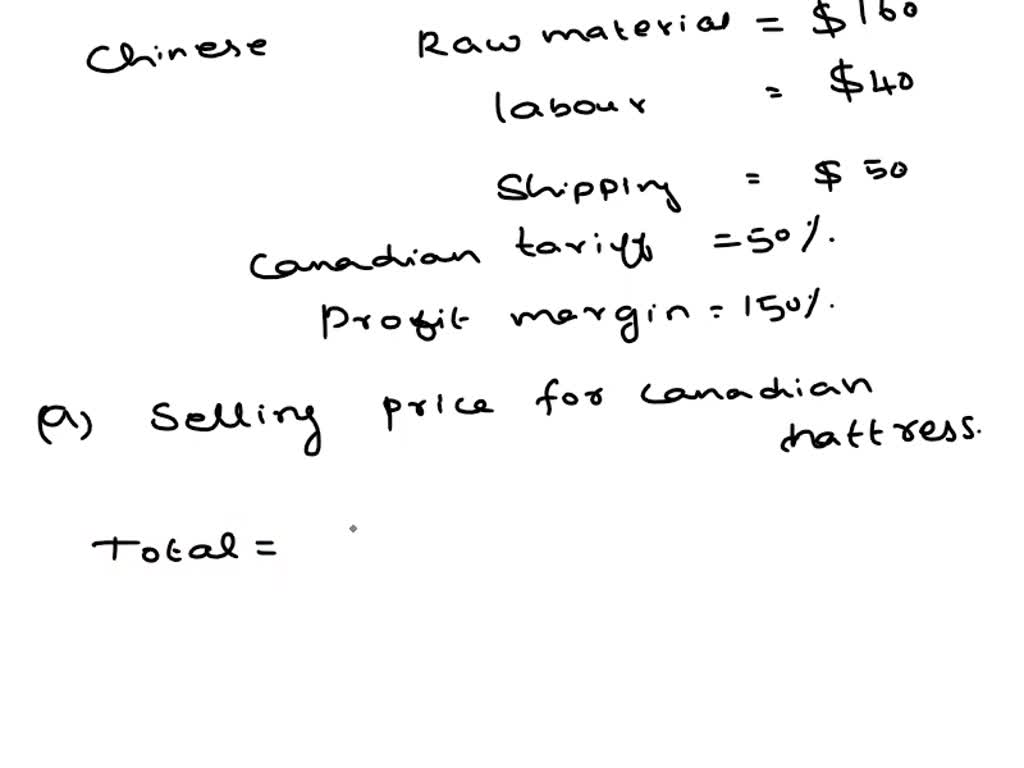 Chinese Raw material = $160
labour = $40
Shipping = $50
Canadian tariff = 50%.
Profit margin = 150%.
(a) Selling price for Canadian
Mattress.
Total =